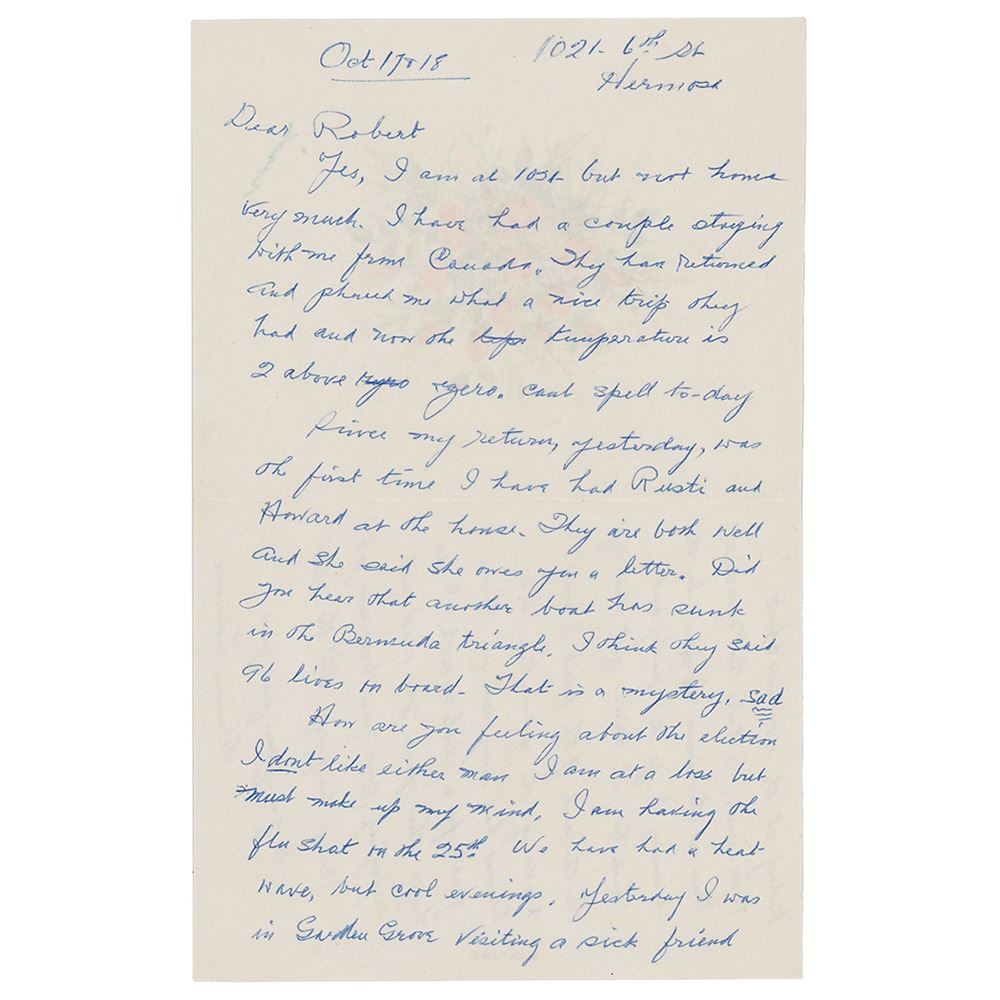 Oct 17 or 18
1021- 6th St
Hermosa
Dear Robert
Yes, I am at 10st but not home
very much. I have had a couple staying
with me from Canada. They have returned
and phoned me what a nice trip they
had and now the temperature is
2 above zero. cant spell to-day
Since my return, yesterday, was
the first time I have had Rusti and
Howard at the house. They are both well
and she said she owes you a letter. Did
you hear that another boat has sunk
in the Bermuda triangle. I think they said
96 lives on board- That is a mystery, sad
How are you feeling about the election
I dont like either man I am at a loss but
must make up my mind, I am having the
flu shot on the 25th We have had a heat
wave, but cool evenings. Yesterday I was
in Garden Grove visiting a sick friend